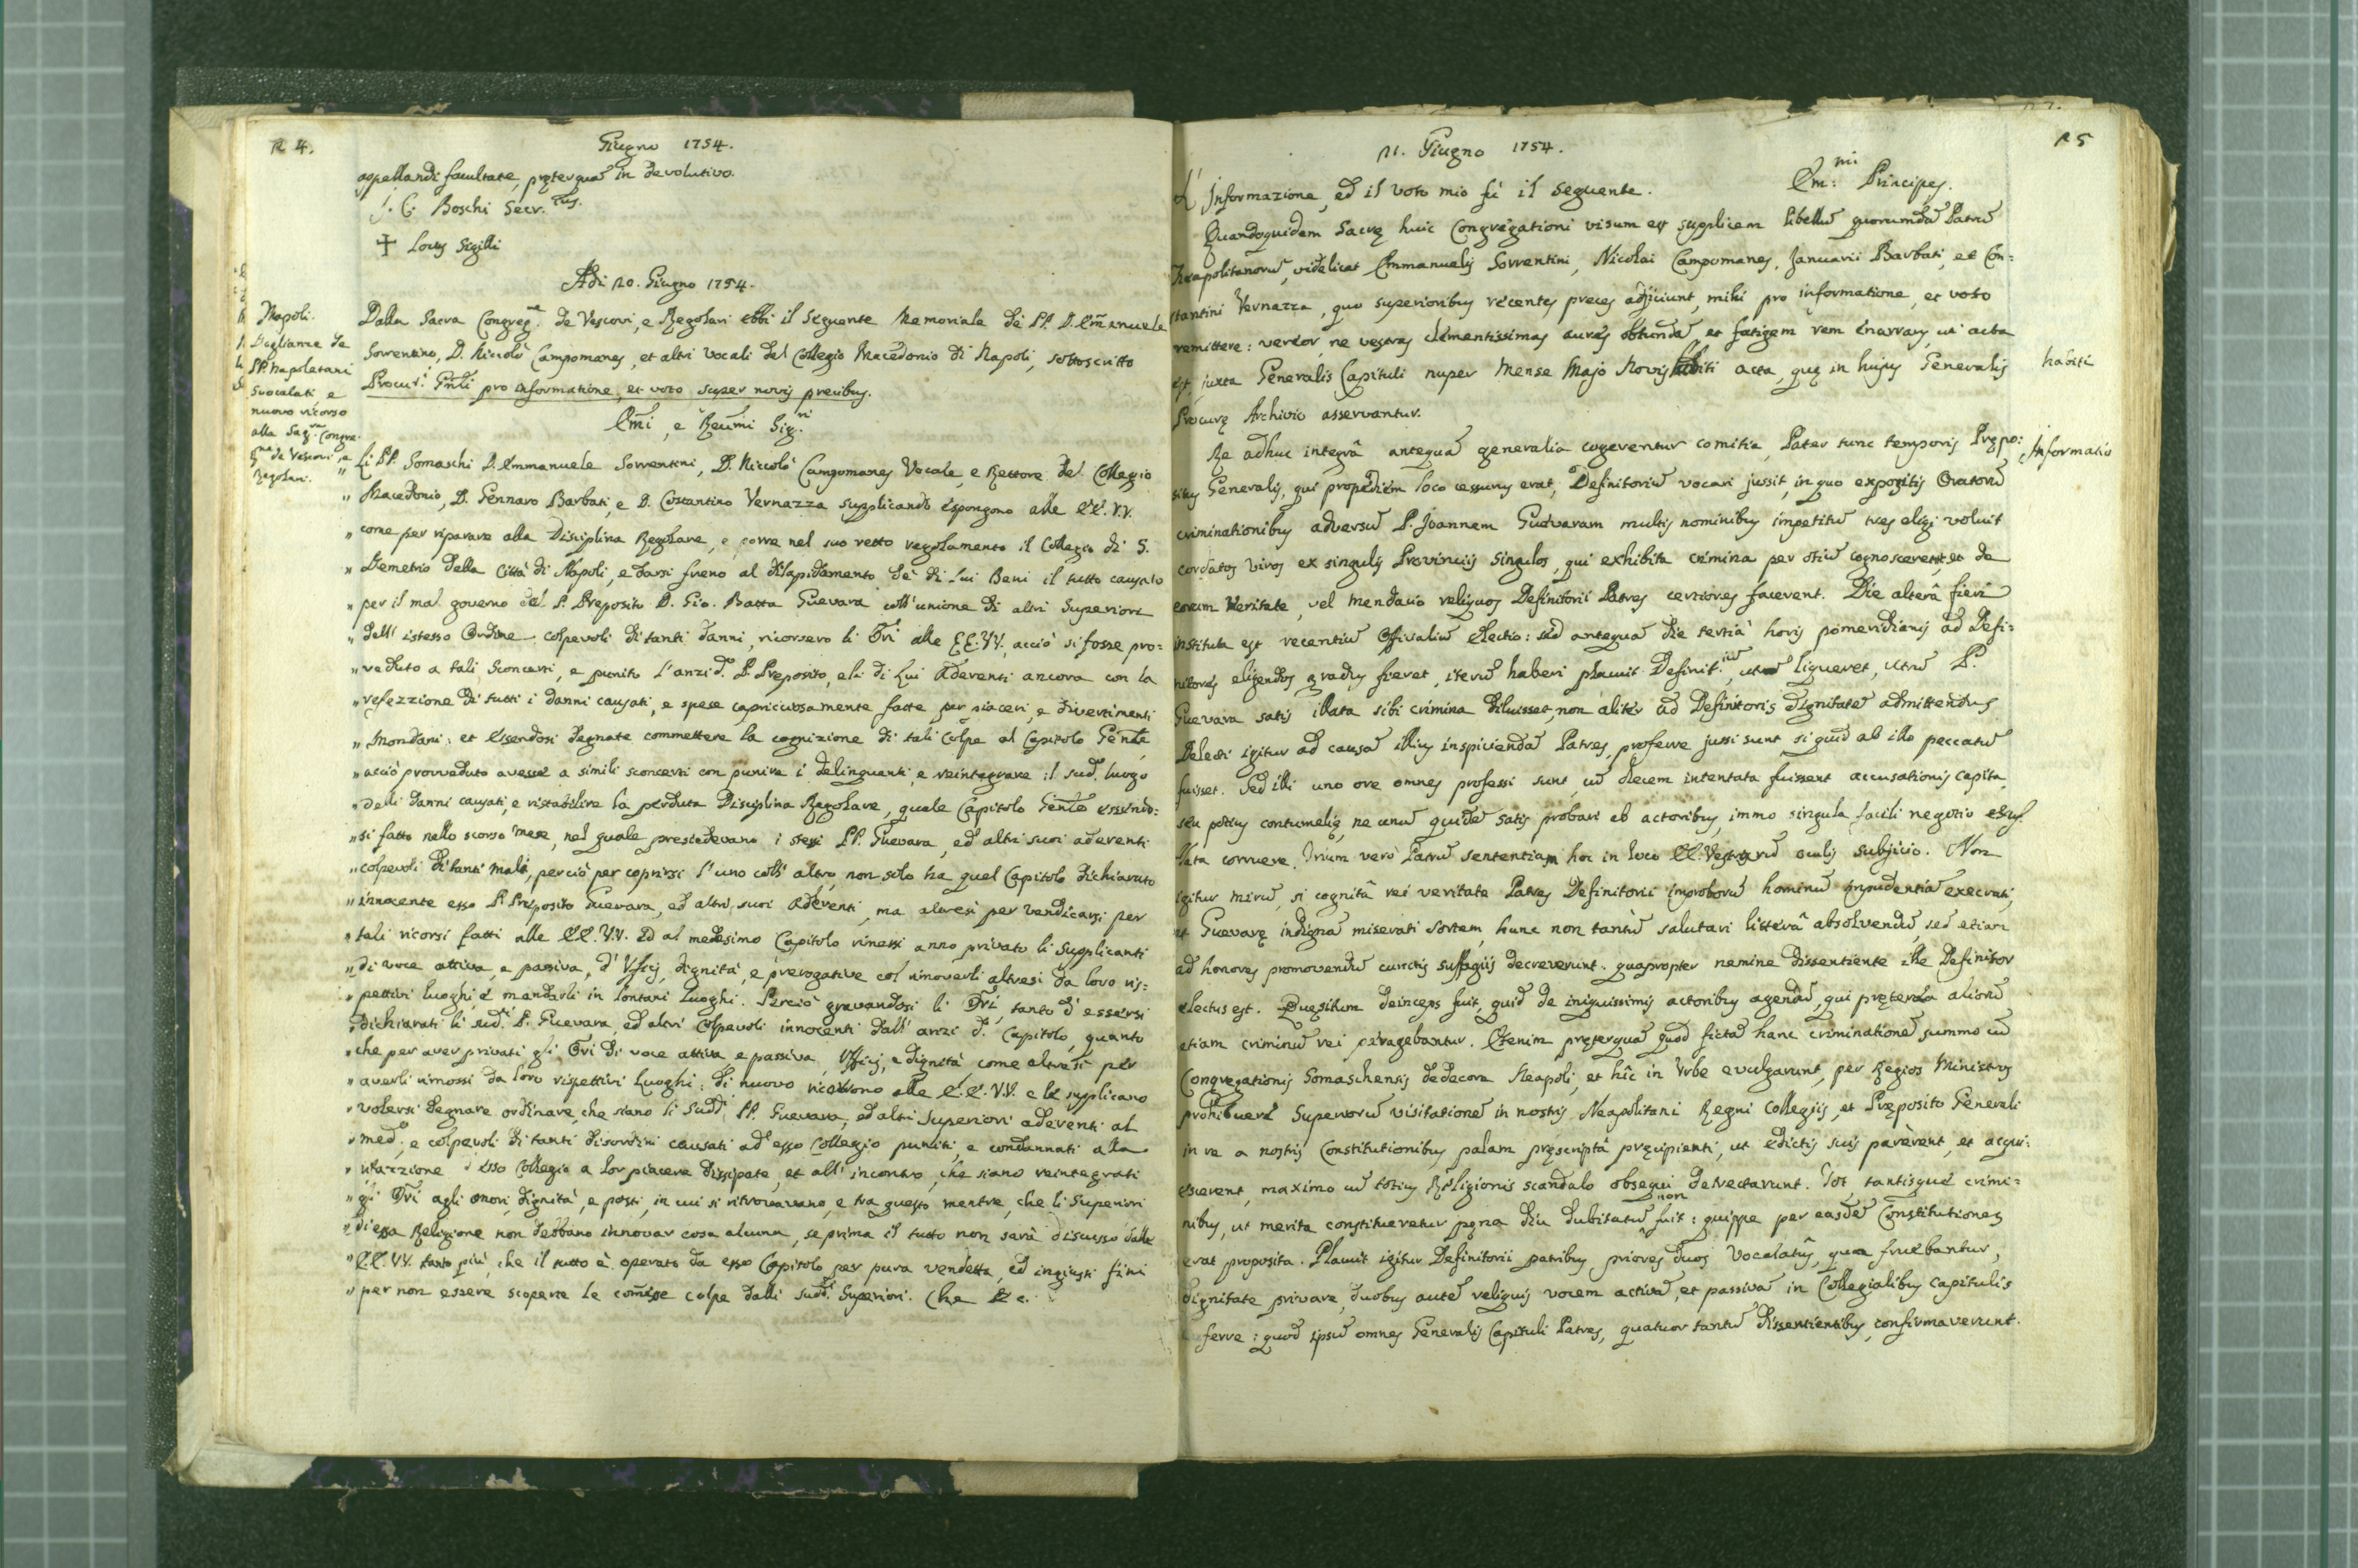 24.
Giugno 1754.
appellandi facultate, pręterquã in devolutivo.
J. C. Boschi Secr.rius.
✝ Locus Sigilli
Adi 20. Giugno 1754.
Napoli.
Doglianze de
PP. Napoletani
Svocalati e
nuovo ricorso
alla Sag.ra Congre-
g.ne de Vescovi, e
Regolari.
Dalla Sacra Congreg.ne de Vescovi, e Regolari ebbi il seguente Memoriale de PP. D. Em̃anuele
Sorrentino, D. Niccolò Campomanes, et altri Vocali del Collegio Macedonio di Napoli, sottoscritto
Procur.i Gñli pro informatione, et voto super novis precibus.
Em̃i, e Reũmi Sig.ri
„ Li PP. Somaschi D. Emmanuele Sorrentini, D. Niccolò Campomanes Vocale, e Rettore del Collegio
„ Macedonio, D. Gennaro Barbati, e D. Costantino Vernazza supplicando espongono alle EE. VV.
„ come per riparare alla Disciplina Regolare, e porre nel suo retto regolamento il Collegio di S.
„ Demetrio della Città di Napoli, e darsi freno al dilapidamento de' di Lui Beni il tutto causato
„ per il mal governo del P. Preposito D. Gio. Batta Guevara coll'unione di altri Superiori
„ dell'istesso Ordine colpevoli di tanti danni, ricorsero li Ori alle EE. VV., acciò si fosse pro=
„ veduto a tali sconcerti, e punito l'anzid.o P. Preposito, e li di Lui Aderenti ancora con la
„ refezzione di tutti i danni causati, e spese capricciosamente fatte per piaceri, e divertimenti
„ Mondani: et essendosi degnate commettere la cognizione di tali Colpe al Capitolo Gen̄le
„ acciò provveduto avesse a simili sconcerti con punire i delinquenti, e reintegrare il sud.o luogo
„ delli danni causati, e ristabilire la perduta Disciplina Regolare, quale Capitolo Gen̄le essendo=
„ si fatto nello scorso mese, nel quale presiedevano i stessi PP. Guevara, ed altri suoi aderenti
„ colpevoli di tanti mali, perciò per coprirsi l'uno coll'altro, non solo ha quel Capitolo dichiarato
„ innocente esso P. Preposito Guevara, ed altri suoi Aderenti, ma altresì per vendicarsi per
„ tali ricorsi fatti alle EE. VV. ed al medesimo Capitolo rimessi anno privato li supplicanti
„ di voce attiva, e passiva, d'Uficj, dignità, e prerogative col rimoverli altresì da loro ris=
„ pettivi luoghi, e mandarli in lontani luoghi. Perciò gravandosi li Ori, tanto d'essersi
„ dichiarati li sud.i P. Guevara, ed altri Colpevoli innocenti dall'anzi d.o Capitolo, quanto
„ che per aver privati gli Ori di voce attiva, e passiva, Ufficj, e dignità, come altresì per
„ averli rimossi da loro rispettivi Luoghi: di nuovo ricorrono alle E.E. V.V. e le supplicano
„ volersi degnare ordinare, che siano li Sudd.i PP. Guevara, ed altri Superiori aderenti al
„ med.o, e colpevoli di tanti disordini causati ad esso Collegio puniti, e condannati alla
„ d'esso Collegio a lor piacere dissipate, et all'incontro, che siano reintegrati
„ gli Ori agli onori, dignità, e posti, in cui si ritrovavano, e tra questo mentre, che li Superiori
„ di essa Religione non debbano innovar cosa alcuna, se prima il tutto non sarà discusso dalle
„ EE. VV. tanto più, che il tutto è operato da esso Capitolo per pura vendetta, ed ingiusti fini
„ per non essere scoperte le com̃esse colpe dalli sudd.i Superiori. Che &c.
25
21. Giugno 1754.
L'Informazione, ed il voto mio fù il seguente.
Em:mi Principes.
Quandoquidem Sacrę huic Congregationi visum est supplicem libellũ quorumdã Patrũ
Neapolitanorũ, videlicet Emmanuelis Sorrentini, Nicolai Campomanes, Januarii Barbati, et Con=
stantini Vernazza, quo superioribus recentes preces adjiciunt, mihi pro informatione, et voto
remittere: vereor, ne vestras clementissimas aures obtundã, et fatigem rem enarrans, ut acta
est, juxta Generalis Capituli nuper Mense Majo Novis habiti acta, quę in hujus Generalis
habiti
Procurę Archivio asservantur.
Re adhuc integrâ antequã generalia cogerentur comitia, Pater tunc temporis Prępo=
Informatio
situs Generalis, qui propediem loco cessurus erat, Definitoriũ vocari jussit, in quo expositis Oratorũ
criminationibus adversus P. Joannem Guevaram multis nominibus impetitũ tres eligi voluit
cordatos viros ex singulis Provinciis singulos, qui exhibita crimina per otiũ cognoscerent, et de
eorum Veritate, vel Mendacio reliquos Definitorii Patres certiores facerent. Die alterâ fieri
instituta est recentiũ Officialiũ electio: sed antequã die tertiâ horis pomeridianis ad Defi=
nitores eligendos gradus fieret, iterũ haberi placuit Definit.iũ, ut liqueret, utrũ P.
Guevara satis illata sibi crimina diluisset, non aliter ad Definitoris dignitatẽ admittendus
Delecti igitur ad causã illius inspiciendã Patres, proferre jussi sunt si quid ab illo peccatũ
fuisset. Sed illi uno ore omnes professi sunt, cũ decem intentata fuissent accusationis capita,
seu potius contumelię, ne unũ quidẽ satis probari ab actoribus, immo singula facili negotio
corruere. Trium verò Patrũ sententiam hoc in loco EE. Vestrarũ oculis subjicio. Non
igitur mirũ, si cognitâ rei veritate Patres Definitorii improborũ hominũ impudentiã execrati,
et Guevarę indignã miserati sortem, hunc non tantũ salutari litterâ absolvendũ, sed etiam
ad honores promovendũ cunctis suffragiis decreverunt. quapropter nemine dissentiente ille Definitor
electus est. Quęsitum deinceps fuit, quid de iniquissimis actoribus agendũ, qui pręterea aliorũ
etiam criminũ rei peragebantur. Etenim pręterquã quod fictã hanc criminationẽ summo cũ
Congregationis Somaschensis dedecore Neapoli, et hîc in Urbe evulgarunt, per Regios Ministros
prohibuerẽ Superiorũ visitationẽ in nostris Neapolitani Regni Collegiis, et Pręposito Generali
in re a nostris Constitutionibus palam pręscriptâ pręcipienti, ut edictis suis parerent, et acqui=
escerent, maximo cũ totius Religionis scandalo obsequi detrectarunt. Tot, tantisque crimi=
nibus, ut merita constitueretur pęna diu non dubitatũ fuit: quippe per easdẽ Constitutiones
erat proposita. Placuit igitur Definitorii patribus, priores duos Vocalatûs, qua fruebantur,
dignitate privare, duobus autẽ reliquis vocem activã, et passivã in Collegialibus Capitulis
ferre: quod ipsũ omnes Generalis Capituli Patres, quatuor tantũ dissentientibus, confirmaverunt.